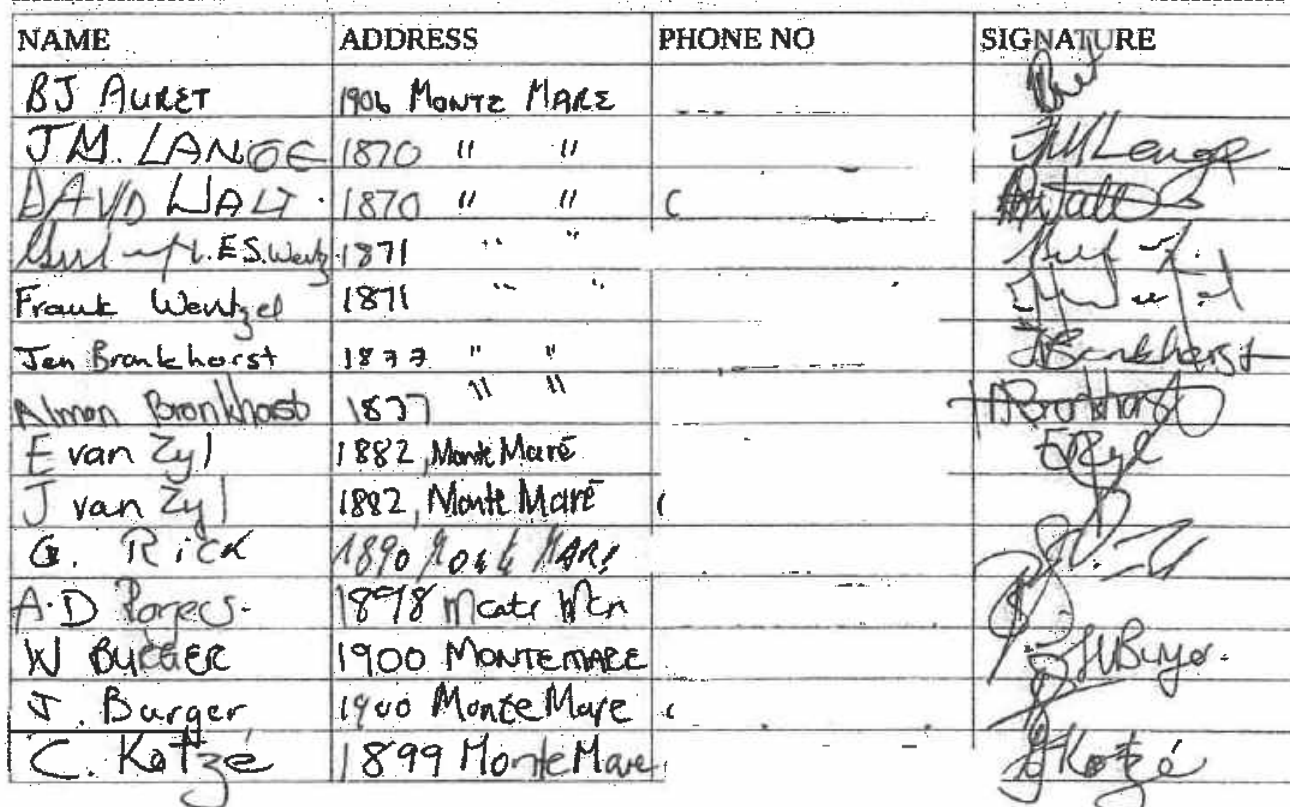 NAME ADDRESS PHONE NO SIGNATURE
BJ AURET 1906 MONTE MARE
J.M. LANGE 1870 " " JMLange
DAVID WALT. 1870 " "
E.S. 1871 " "
Frank Wentzel 1871 " "
Jen Bronkhorst 1877 " " JBronkhorst
Almon Bronkhorst 1877 " " ABronkhorst
E van Zyl 1882, Monte Maré EvZyl
J van Zyl 1882, Monte Maré
G. Rick 1890 MARE
A.D 1898
W BURGER 1900 MONTEMARE
J. Burger 1900 Monte Mare
C. Kotzé 1899 Monte Mare Kotzé